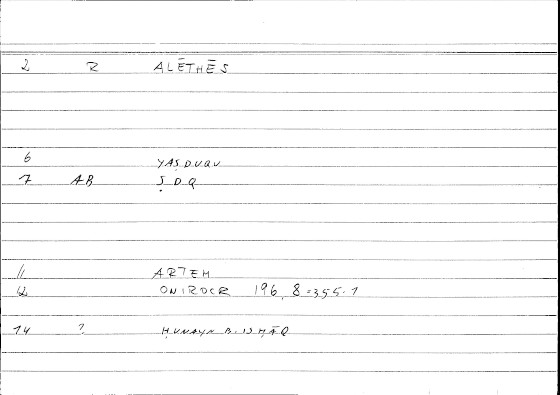 2 R ALĒTHĒS
6 YAṢDUQU
7 AB Ṣ D Q
11 ARTEM
12 ONIROCR 196, 8=355.1
14 ? ḤUNAYN B. ISḤĀQ